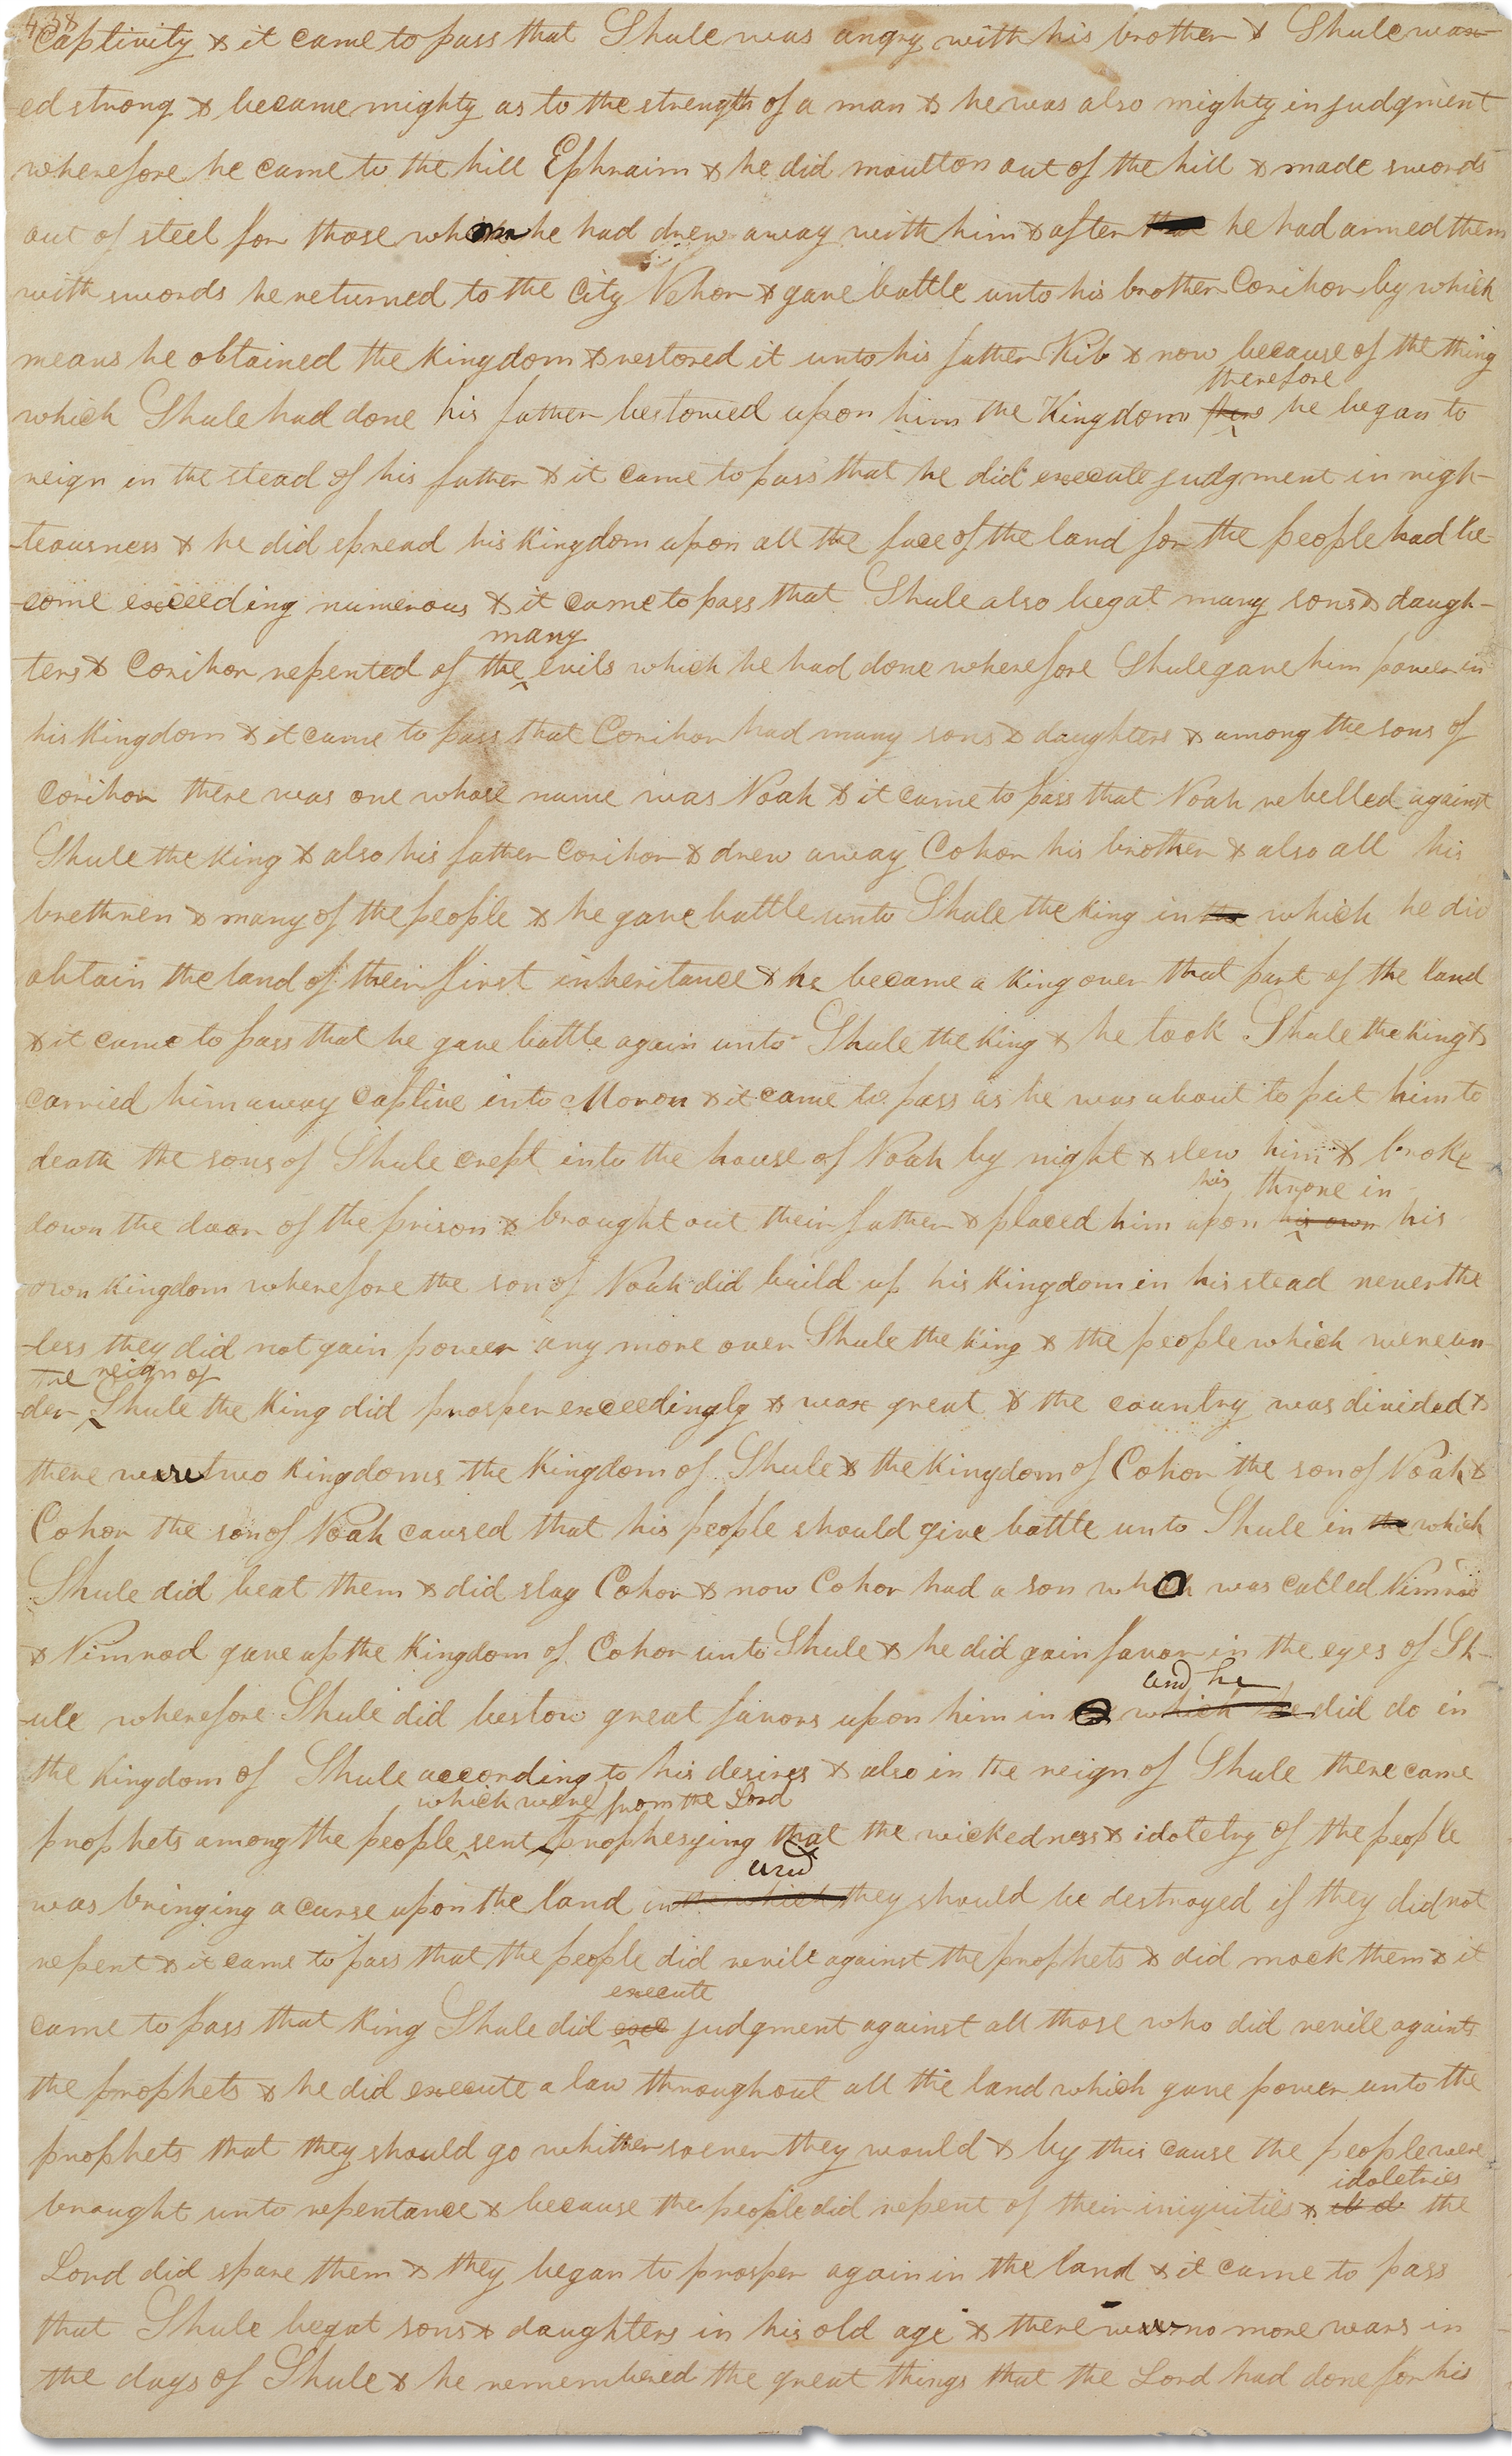 438
Captivity & it came to pass that Shule was angry with his brother & Shule wax-
-ed strong & became mighty as to the strength of a man & he was also mighty in judgment
wherefore he came to the hill Ephraim & he did moulton out of the hill & made swords
out of steel for those whom he had drew away with him & after that he had armed them
with swords he returned to the City Nehor & gave battle unto his brother Corihor by which
means he obtained the Kingdom & restored it unto his father Kib & now because of the thing
therefore
which Shule had done his father bestowed upon him the Kingdom he began to
reign in the stead of his father & it came to pass that he did execute judgment in righ-
-teousness & he did spread his Kingdom upon all the face of the land for the people had be-
-come exceeding numerous & it came to pass that Shule also begat many sons & daugh-
many
ters & Corihor repented of the evils which he had done wherefore Shule gave him power in
his Kingdom & it came to pass that Corihor had many sons & daughters & among the sons of
Corihor there was one whose name was Noah & it came to pass that Noah rebelled against
Shule the King & also his father Corihor & drew away Cohor his brother & also all his
brethren & many of the people & he gave battle unto Shule the King in the which he did
obtain the land of their first inheritance & he became a King over that part of the land
& it came to pass that he gave battle again unto Shule the King & he took Shule the King &
carried him away captive into Moron & it came to pass as he was about to put him to
death the sons of Shule crept into the house of Noah by night & slew him & broke
his throne in
down the door of the prison & brought out their father & placed him upon his own his
own Kingdom wherefore the son of Noah did build up his Kingdom in his stead never the
-less they did not gain power any more over Shule the King & the people which were un-
the reign of
-der Shule the King did prosper exceedingly & wax great & the country was divided &
there were two Kingdoms the Kingdom of Shule & the Kingdom of Cohor the son of Noah &
Cohor the son of Noah caused that his people should give battle unto Shule in the which
Shule did beat them & did slay Cohor & now Cohor had a son who was called Nimrod
& Nimrod gave up the Kingdom of Cohor unto Shule & he did gain favor in the eyes of Sh-
and he
-ule wherefore Shule did bestow great favors upon him in which he did do in
the Kingdom of Shule according to his desires & also in the reign of Shule there came
which were from the Lord
prophets among the people sent prophesying that the wickedness & idoletry of the people
and
was bringing a curse upon the land in the which they should be destroyed if they did not
repent & it came to pass that the people did revile against the prophets & did mock them & it
execute
came to pass that King Shule did exe judgment against all those who did revile againts
the prophets & he did execute a law throughout all the land which gave power unto the
prophets that they should go whithersoever they would & by this cause the people were
idoletries
braught unto repentance & because the people did repent of their iniquities & the
Lord did spare them & they began to prosper again in the land & it came to pass
that Shule begat sons & daughters in his old age & there were no more wars in
the days of Shule & he remembered the great things that the Lord had done for his